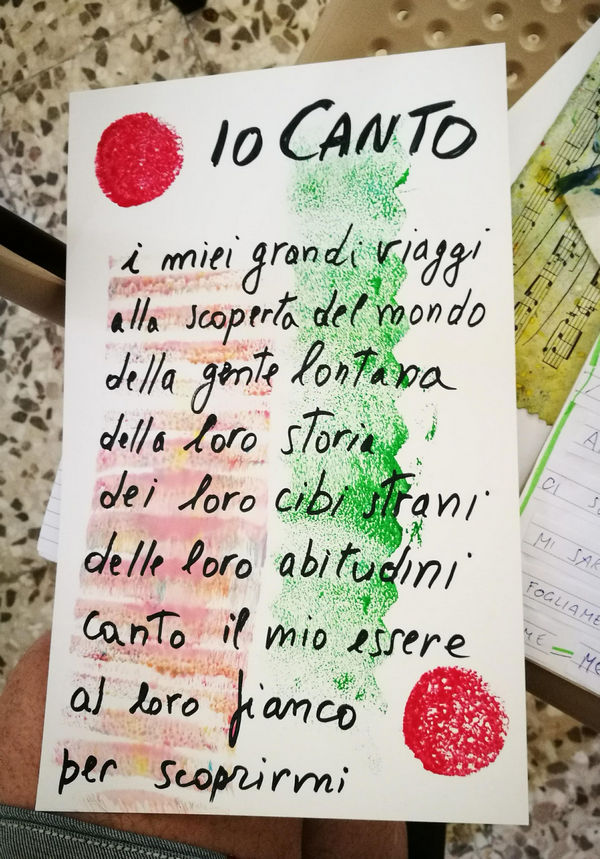 IO CANTO
i miei grandi viaggi
alla scoperta del mondo
della gente lontana
della loro storia
dei loro cibi strani
delle loro abitudini
canto il mio essere
al loro fianco
per scoprirmi
CI
MI SAR
FOGLIAME